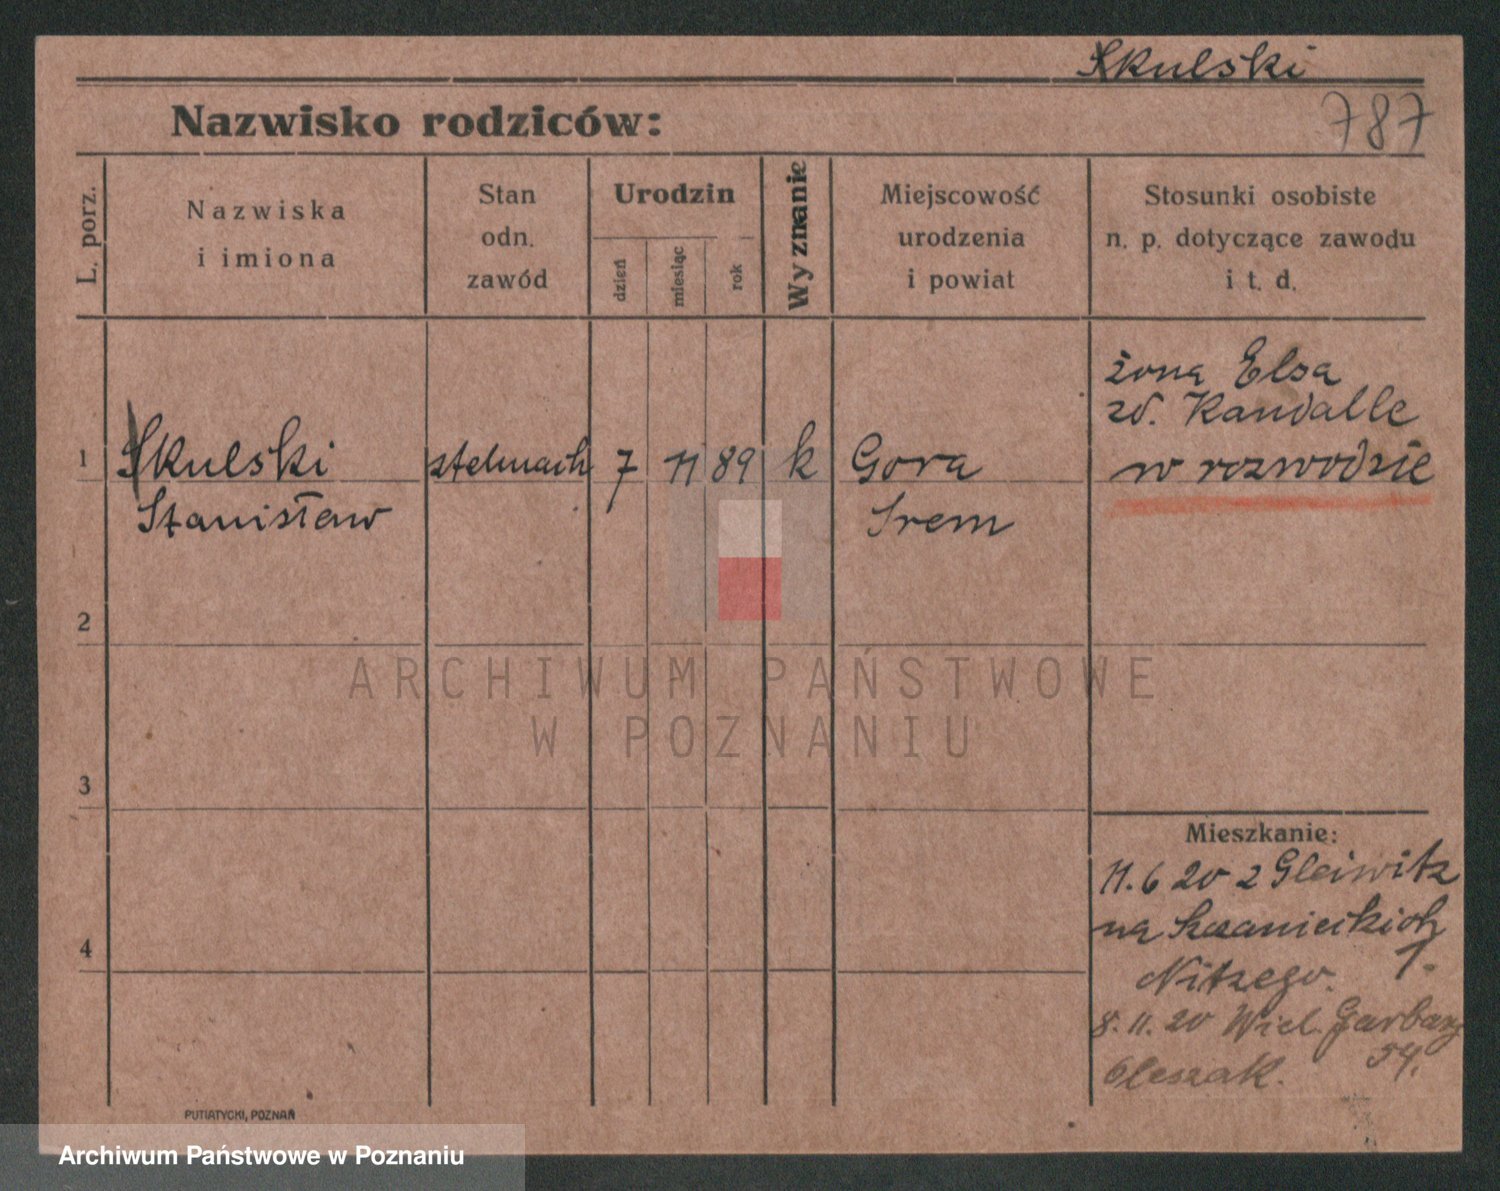 Skulski
Nazwisko rodziców:
787
L. porz.
Nazwiska
i imiona
Stan
odn.
zawód
Urodzin
dzień
miesiąc
rok
Wyznanie
Miejscowość
urodzenia
i powiat
Stosunki osobiste
n. p. dotyczące zawodu
i t. d.
1
Skulski
Stanisław
stelmach
7
11
89
k
Gora
Srem
żona Elsa
zd. Kandalle
w rozwodzie
2
3
4
Mieszkanie:
11.6 20 z Gleiwitz
na Szanieckich
1.
Nitzego.
8.11.20 Wiel. Garbary
54.
Oleszak.
PUTIATYCKI, POZNAŃ
ARCHIWUM PAŃSTWOWE
W POZNANIU
Archiwum Państwowe w Poznaniu